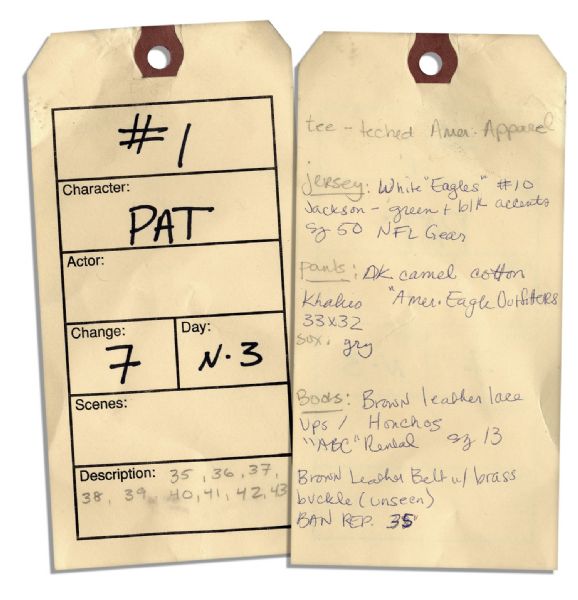 #1
Character:
PAT
Actor:
Change:
7
Day:
N.3
Scenes:
Description: 35, 36, 37,
38, 39, 40, 41, 42, 43
tee - teched Amer. Apparel
jersey: White "Eagles" #10
Jackson - green + blk accents
sz 50 NFL Gear
pants: DK camel cotton
Khakis "Amer. Eagle Outfitters
33x32
sox: gry
Boots: Brown leather lace
ups / Honchos
"ABC" Rental sz 13
Brown Leather Belt w/ brass
buckle (unseen)
BAN REP. 35"